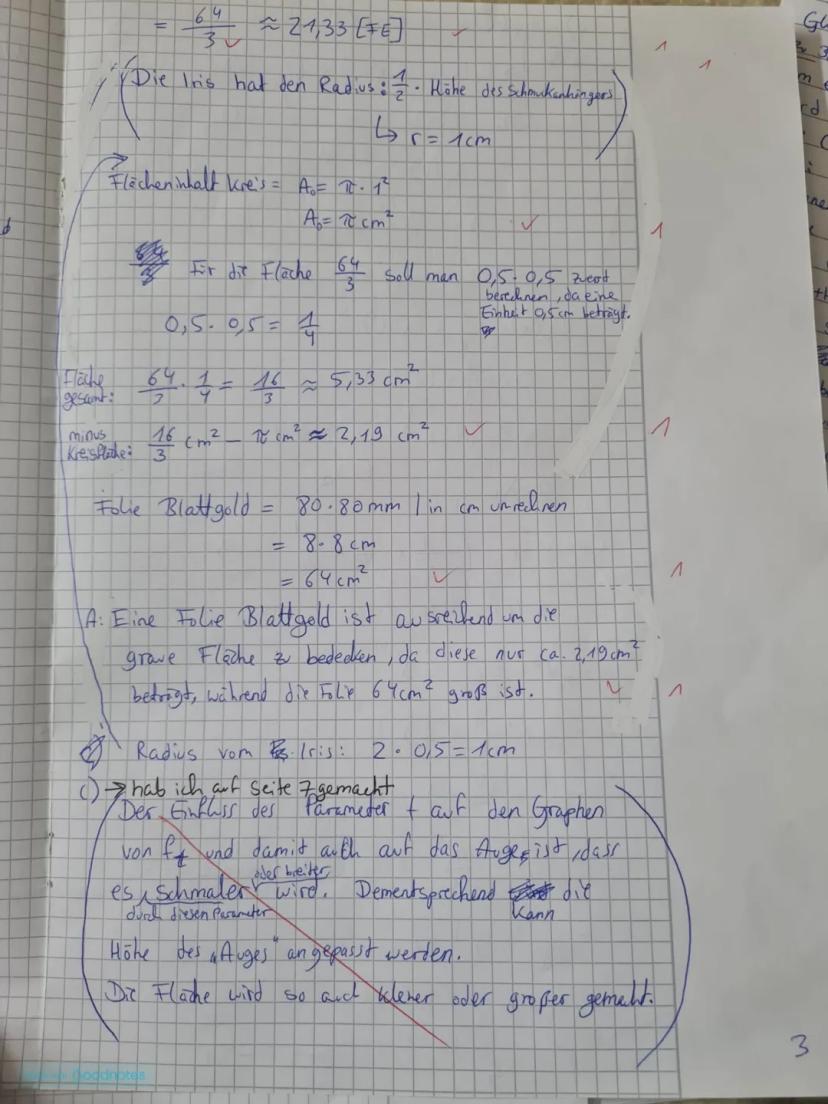 = 64/3 ≈ 21,33 [FE]
(Die Iris hat den Radius: 1/2 · Höhe des Schmukanhingers)
↳ r = 1cm
Flächeninhalt Kreis = A₀ = π · 1²
A₀ = π cm²
Für die Fläche 64/3 soll man 0,5 · 0,5 zuerst
berechnen, da eine
Einheit 0,5cm beträgt.
0,5 · 0,5 = 1/4
Fläche gesamt: 64/3 · 1/4 = 16/3 ≈ 5,33 cm²
minus Kreisfläche: 16/3 cm² − π cm² ≈ 2,19 cm²
Folie Blattgold = 80 · 80 mm | in cm umrechnen
= 8 · 8 cm
= 64 cm²
A: Eine Folie Blattgold ist ausreichend um die
graue Fläche zu bedecken, da diese nur ca. 2,19 cm²
beträgt, während die Folie 64cm² groß ist.
Radius vom Iris: 2 · 0,5 = 1cm
c) → hab ich auf Seite 7 gemacht
(Der Einfluss des Parameter t auf den Graphen
von f_t und damit auch auf das Auge, ist, dass
es durch diesen Parameter schmaler oder breiter wird. Dementsprechend kann die
Höhe des „Auges" angepasst werden.
Die Fläche wird so auch kleiner oder größer gemacht.)
3
1
1
1
1
1
1
Goodnotes